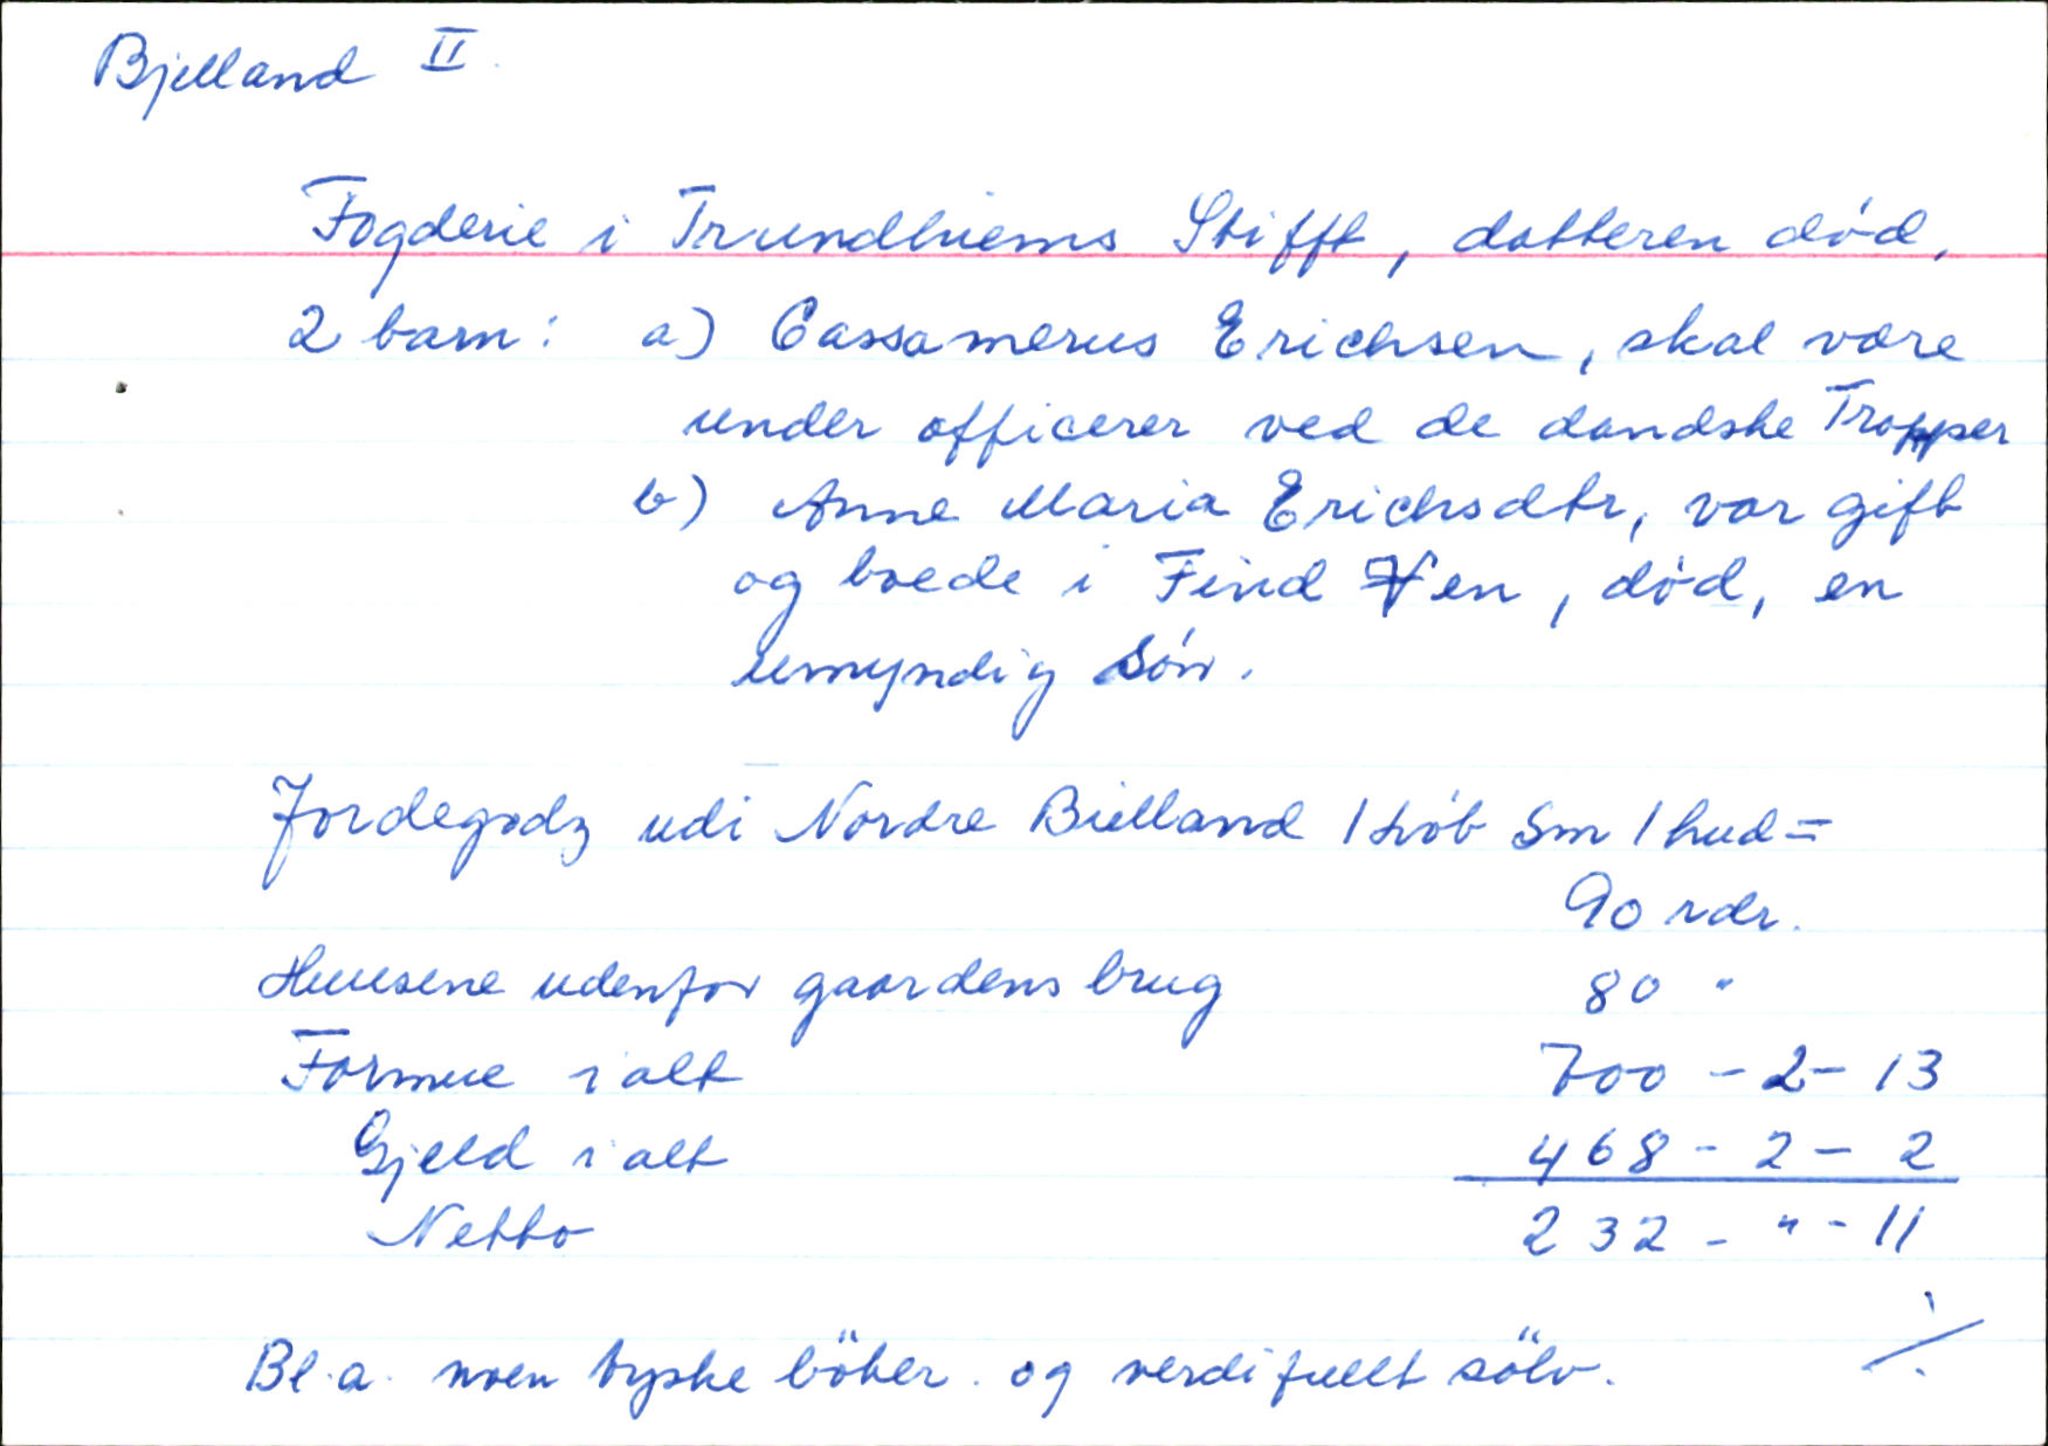 Bjelland II.
Fogderie i Trundhiems Stifft, datteren død,
2 barn: a) Cassamerus Erichsen, skal være
under officerer ved de dandske Tropper
b) Anne Maria Erichsdtr, var gift
og boede i Find Ven, død, en
umyndig Søn.
Jordegodz udi Nordre Bielland 1 Løb Sm 1 hud =
90 rdr.
Huusene udenfor gaardens brug 80 "
Formue i alt 700 - 2 - 13
Gjeld i alt 468 - 2 - 2
Netto 232 - " - 11
Bl.a. noen tyske böker og verdifullt sölv. ./.